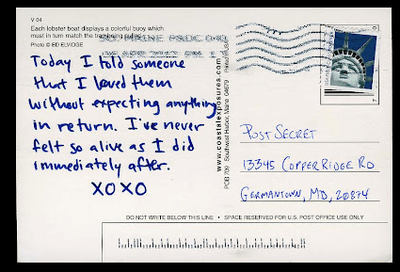 V 04
Each lobster boat displays a colorful buoy which
must in turn match the
Photo © ED ELVIDGE
Today I told someone
that I loved them
without expecting anything
in return. I've never
felt so alive as I did
immediately after.
XOXO
www.coastalexposures.com
POB 709 Southwest Harbor, Maine 04679
Printed in USA
Post Secret
13345 Copper Ridge Rd
Germantown, MD, 20874
DO NOT WRITE BELOW THIS LINE • SPACE RESERVED FOR U.S. POST OFFICE USE ONLY